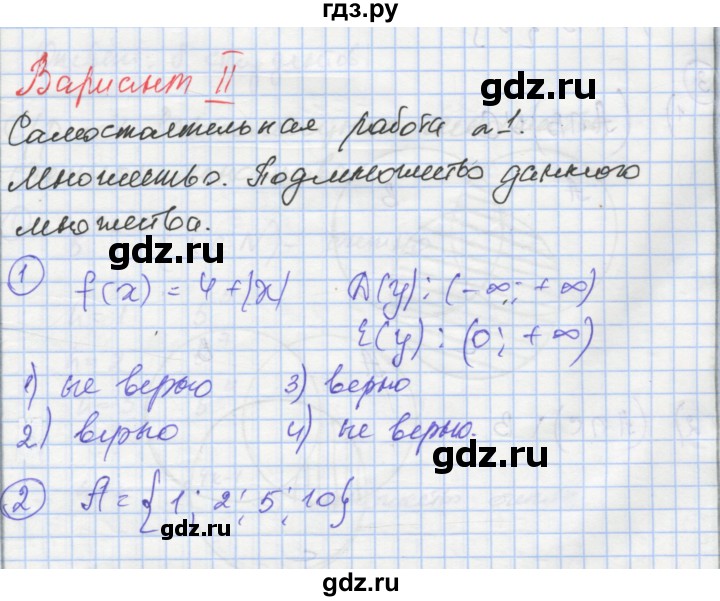 гдз.ру
Вариант II
Самостоятельная работа №1.
Множество. Подмножество данного
множества.
① f(x) = 4 + |x|   D(y): (-∞; +∞)
E(y): (0; +∞)
1) не верно   3) верно
2) верно   4) не верно.
② A = {1; 2; 5; 10}
gdz.ru
gdz.ru
gdz.ru
gdz.ru
gdz.ru
gdz.ru
gdz.ru
gdz.ru